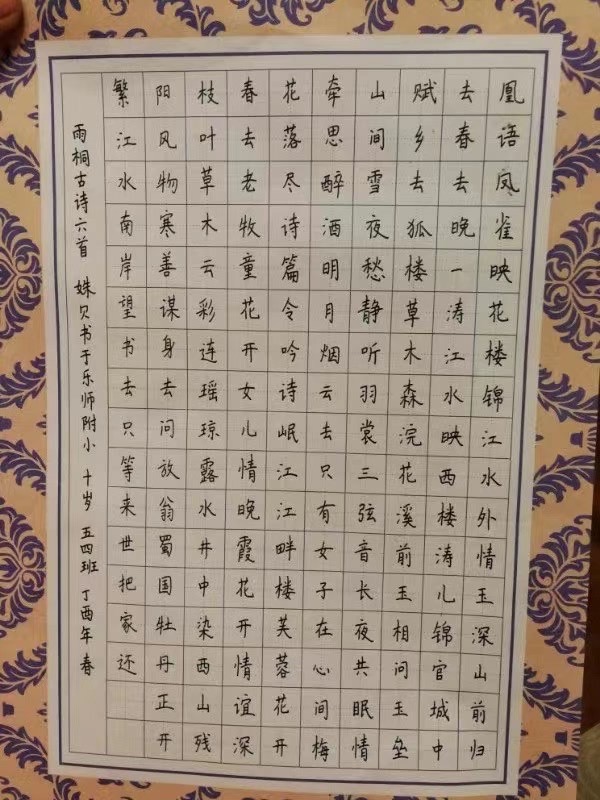 凰语凤雀映花楼锦江水外情玉深山前归
去春去晚一涛江水映西楼涛儿锦官城中
赋乡去孤楼草木森浣花溪前玉相问玉垒
山间雪夜愁静听羽裳三弦音长夜共眠情
牵思醉酒明月烟云去只有女子在心间梅
花落尽诗篇令吟诗岷江江畔楼芙蓉花开
春去老牧童花开女儿情晚霞花开情谊深
枝叶草木云彩连瑶琼露水井中染西山残
阳风物寒善谋身去问放翁蜀国牡丹正开
繁江水南岸望书去只等来世把家还
雨桐古诗六首 姝贝书于乐师附小 十岁 五四班 丁酉年春